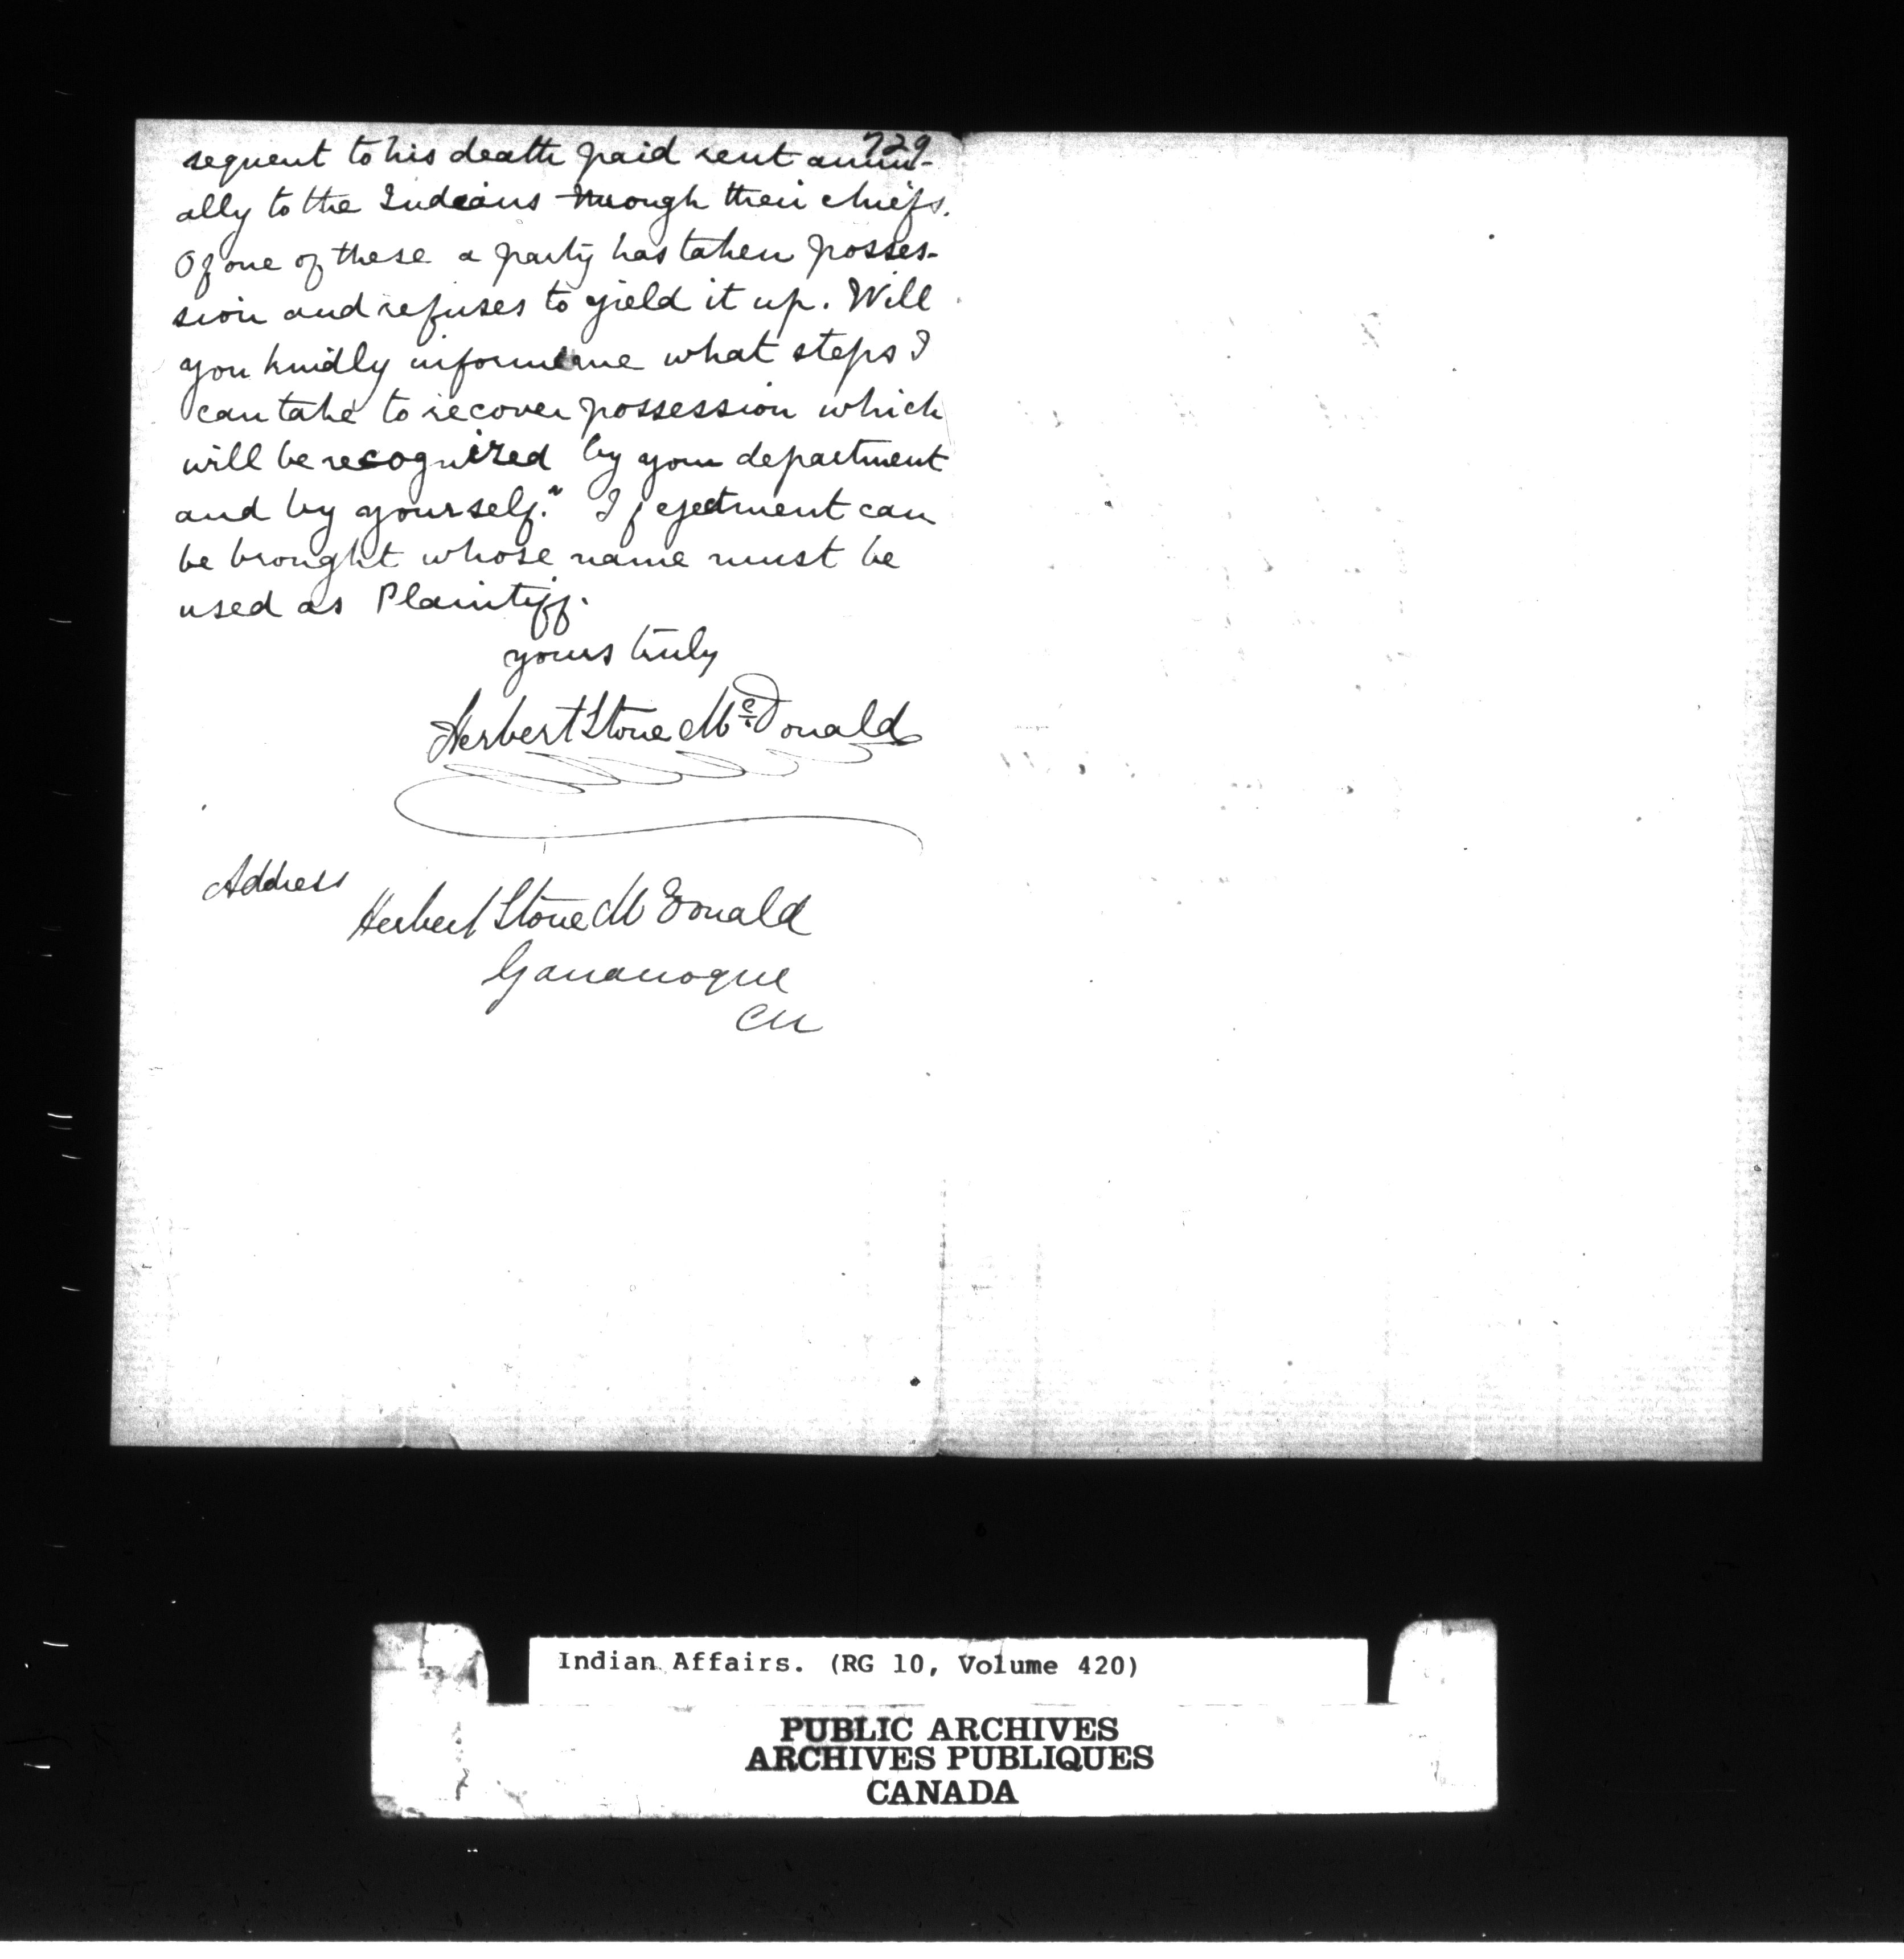 729
sequent to his death paid rent annu-
ally to the Indians through their chiefs.
Of one of these a party has taken posses-
sion and refuses to yield it up. Will
you kindly inform me what steps I
can take to recover possession which
will be recognized by your department
and by yourself." If ejectment can
be brought whose name must be
used as Plaintiff.
yours truly
Herbert Stone McDonald
Address
Herbert Stone McDonald
Gananoque
CW
Indian Affairs. (RG 10, Volume 420)
PUBLIC ARCHIVES
ARCHIVES PUBLIQUES
CANADA